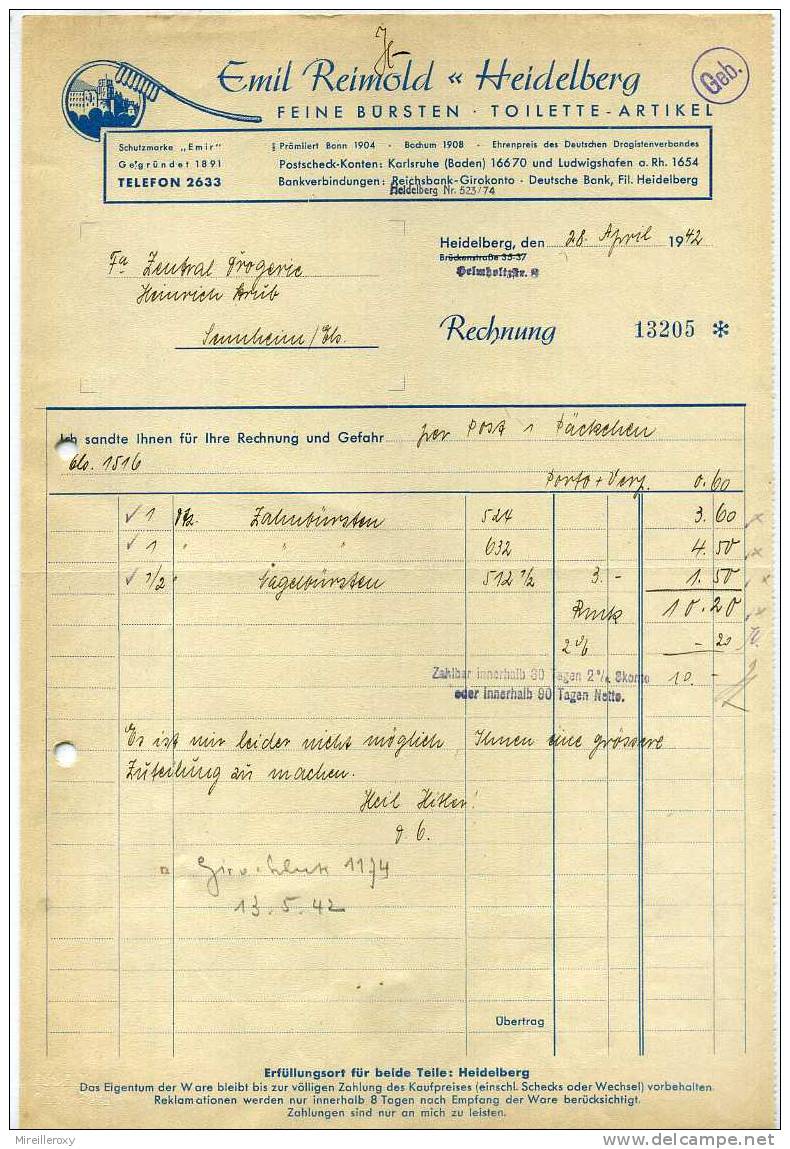 Emil Reimold « Heidelberg
Geb.
FEINE BÜRSTEN · TOILETTE-ARTIKEL
Schutzmarke „Emir"
Gegründet 1891
TELEFON 2633
Prämiiert Bonn 1904 · Bochum 1908 · Ehrenpreis des Deutschen Drogistenverbandes
Postscheck-Konten: Karlsruhe (Baden) 16670 und Ludwigshafen a. Rh. 1654
Bankverbindungen: Reichsbank-Girokonto · Deutsche Bank, Fil. Heidelberg
Heidelberg Nr. 523/74
Heidelberg, den 28. April 1942
Brückenstraße 35-37
Helmholtzstr. 8
Fa Zentral Drogerie
Heinrich
Sennheim/Els.
Rechnung 13205 *
Ich sandte Ihnen für Ihre Rechnung und Gefahr per Post 1 Päckchen
1516
Porto + Verp. 0.60
1 Zahnbürsten 524 3.60
1 " " " 632 4.50
1/2 " Nagelbürsten 512 1/2 3.- 1.50
Rmk 10.20
2% - 20
Zahlbar innerhalb 30 Tagen 2% Skonto 10.-
oder innerhalb 90 Tagen Netto.
Es ist mir leider nicht möglich, Ihnen eine grössere
Zuteilung zu machen.
Heil Hitler!
1174
13.5.42
Übertrag
Erfüllungsort für beide Teile: Heidelberg
Das Eigentum der Ware bleibt bis zur völligen Zahlung des Kaufpreises (einschl. Schecks oder Wechsel) vorbehalten.
Reklamationen werden nur innerhalb 8 Tagen nach Empfang der Ware berücksichtigt.
Zahlungen sind nur an mich zu leisten.
Mireilleroxy
delcampe.net